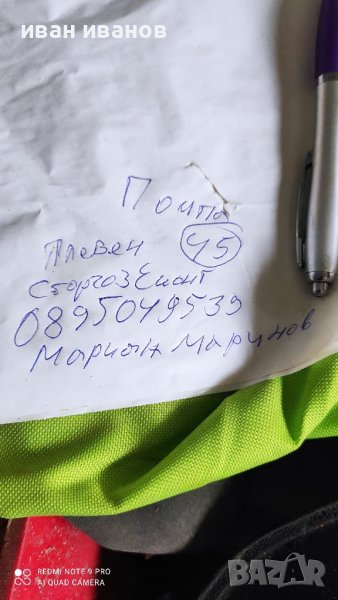 иван иванов
Помпа
45
Плевен
Сторгоз Еконт
0895049539
Мариян Маринов
REDMI NOTE 9 PRO
AI QUAD CAMERA
BAZAR